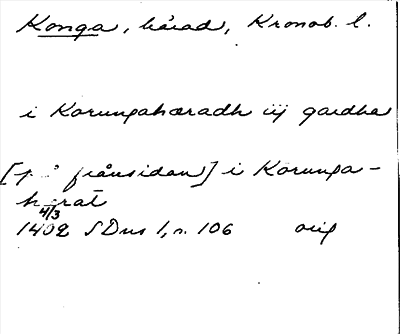 Konga, härad, Kronob. l.
i Korungahæradh iij gardha
[på frånsidan] i Korunga-
hærat
4/3
1402 SDns 1, s. 106 orig